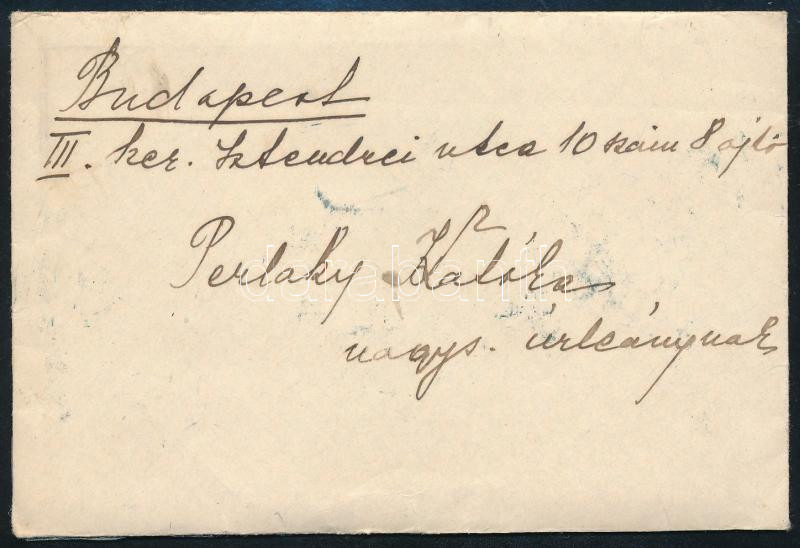 Budapest
III. ker. Sztendrei utca 10 szám 8 ajtó
Perlaky Katóka
nagys. úrleánynak
darabanth